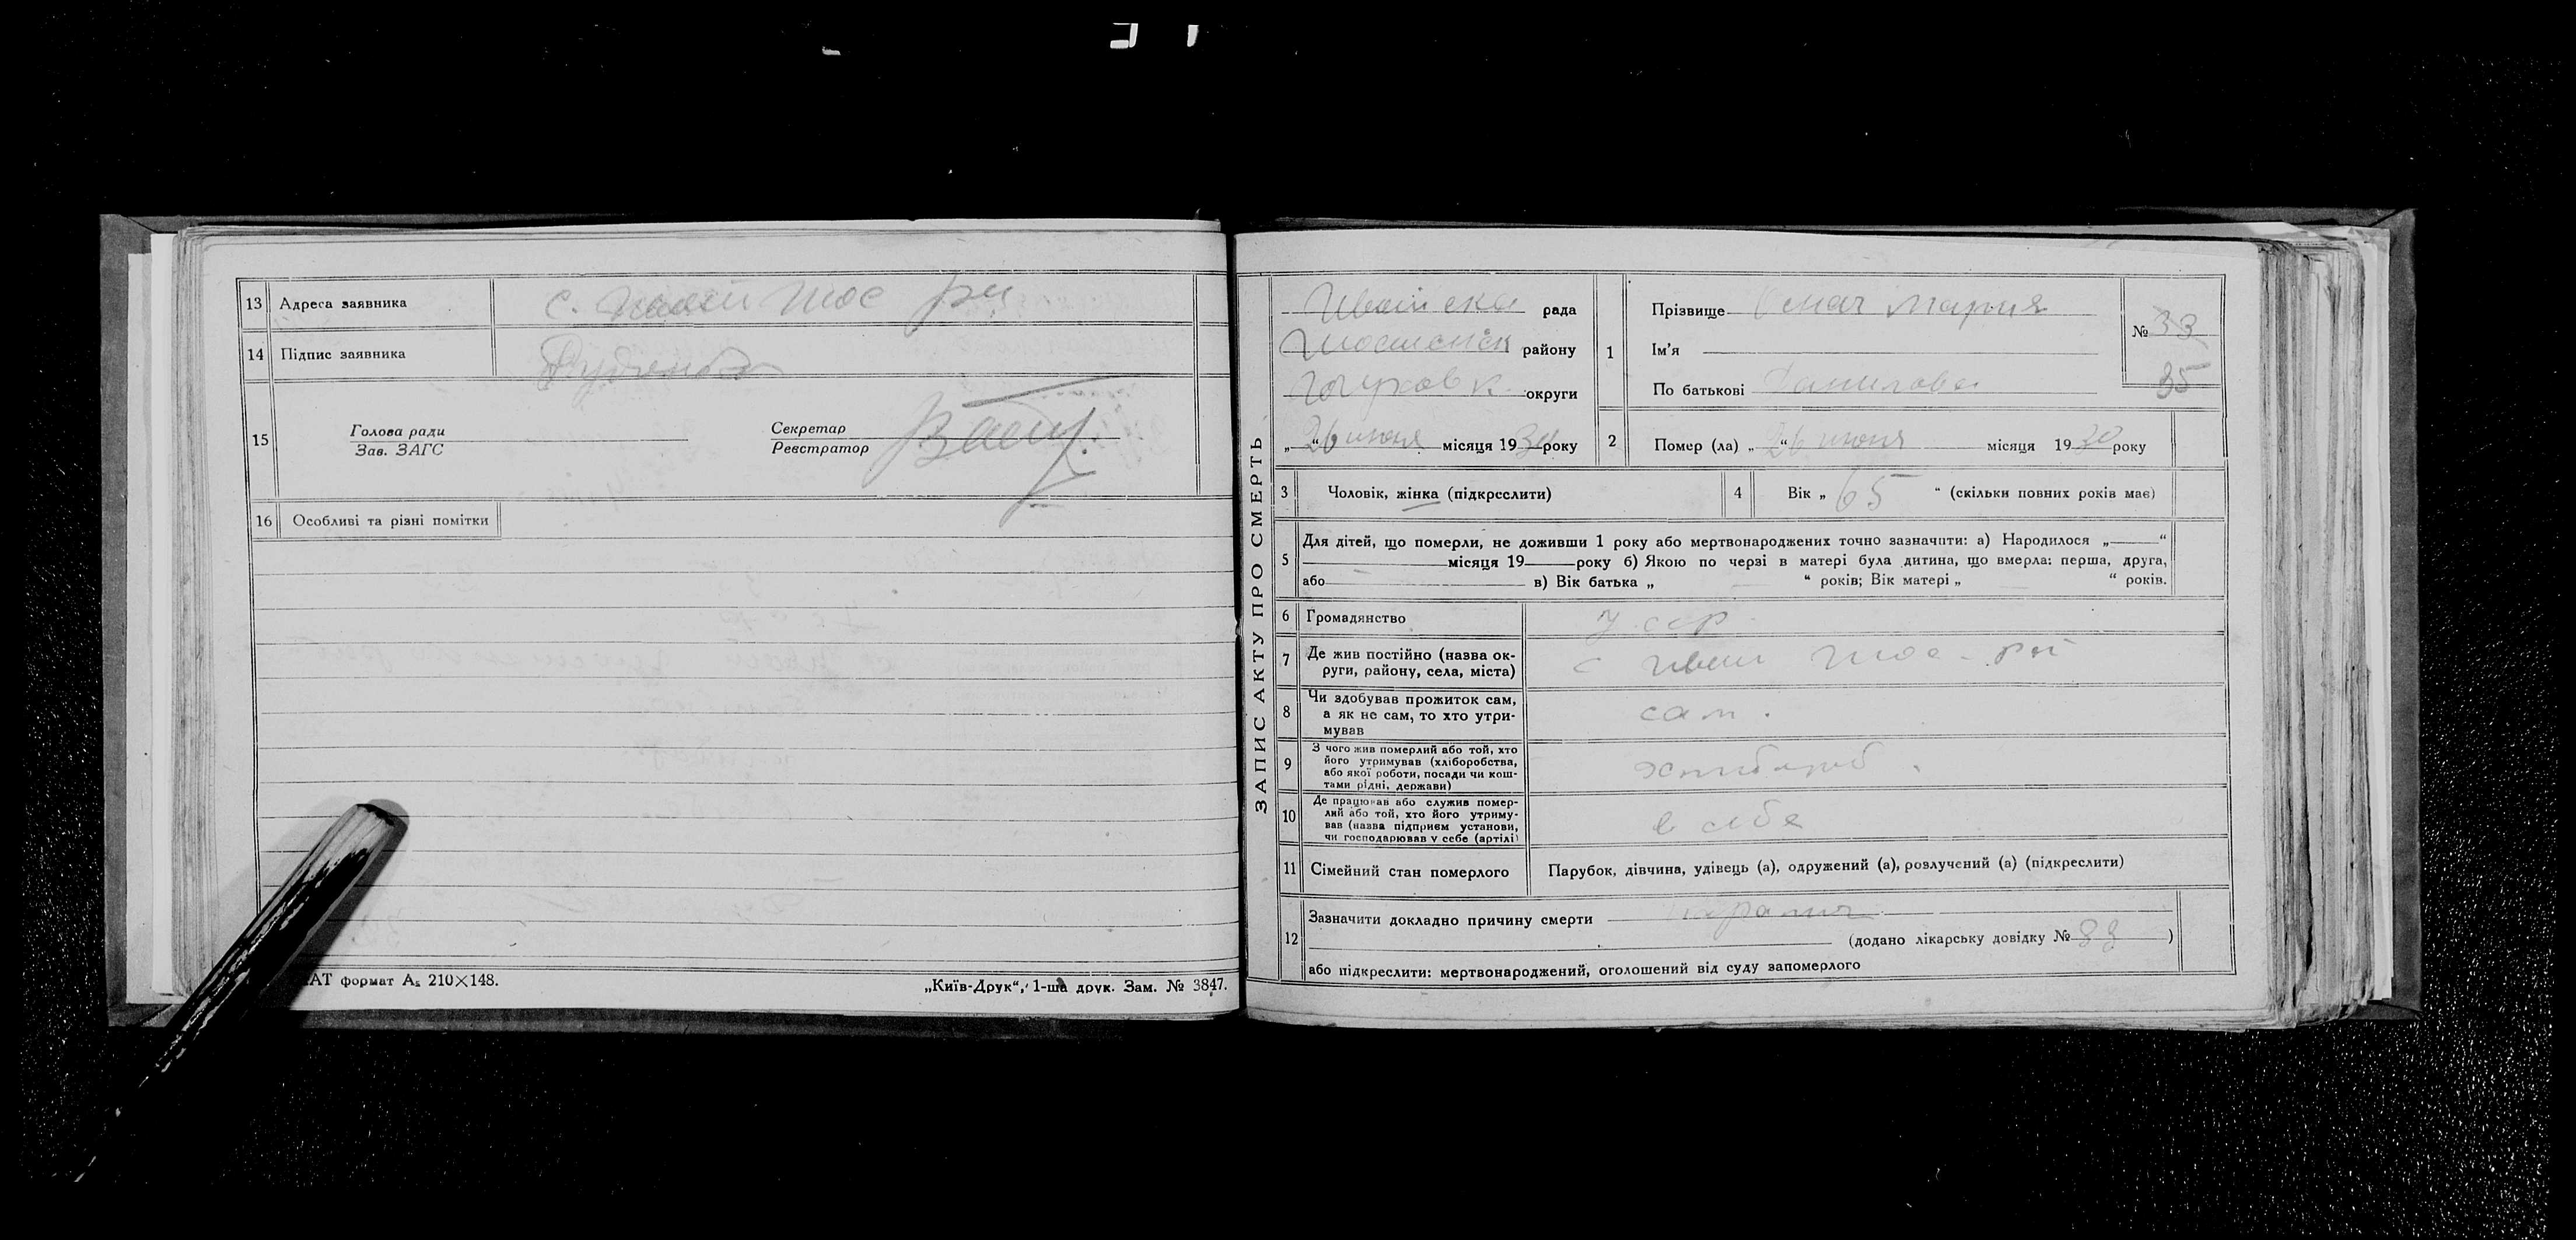 13 Адреса заявника с.
14 Підпис заявника
15 Голова ради
Зав. ЗАГС
Секретар
Реєстратор
16 Особливі та різні помітки
формат А₅ 210×148.
„Київ-Друк“, 1-ша друк. Зам. № 3847.
ЗАПИС АКТУ ПРО СМЕРТЬ
рада
району
округи
„26“ июня місяця 1930 року
1 Прізвище Мария
Ім'я
По батькові Данилова
№ 33
35
2 Помер (ла) „26“ июня місяця 1930 року
3 Чоловік, жінка (підкреслити)
4 Вік „65“ (скільки повних років має)
5 Для дітей, що померли, не доживши 1 року або мертвонароджених точно зазначити: а) Народилося „ “
місяця 19 року б) Якою по черзі в матері була дитина, що вмерла: перша, друга,
або в) Вік батька „ “ років; Вік матері „ “ років.
6 Громадянство УССР
7 Де жив постійно (назва ок-
руги, району, села, міста) с
8 Чи здобував прожиток сам,
а як не сам, то хто утри-
мував
сам.
9 З чого жив померлий або той, хто
його утримував (хліборобства,
або якої роботи, посади чи кош-
тами рідні, держави)
хлібороб.
10 Де працював або служив помер-
лий або той, хто його утриму-
вав (назва підприєм установи,
чи господарював у себе (артілі)
в себе
11 Сімейний стан померлого Парубок, дівчина, удівець (а), одружений (а), розлучений (а) (підкреслити)
12 Зазначити докладно причину смерти
(додано лікарську довідку № )
або підкреслити: мертвонароджений, оголошений від суду запомерлого